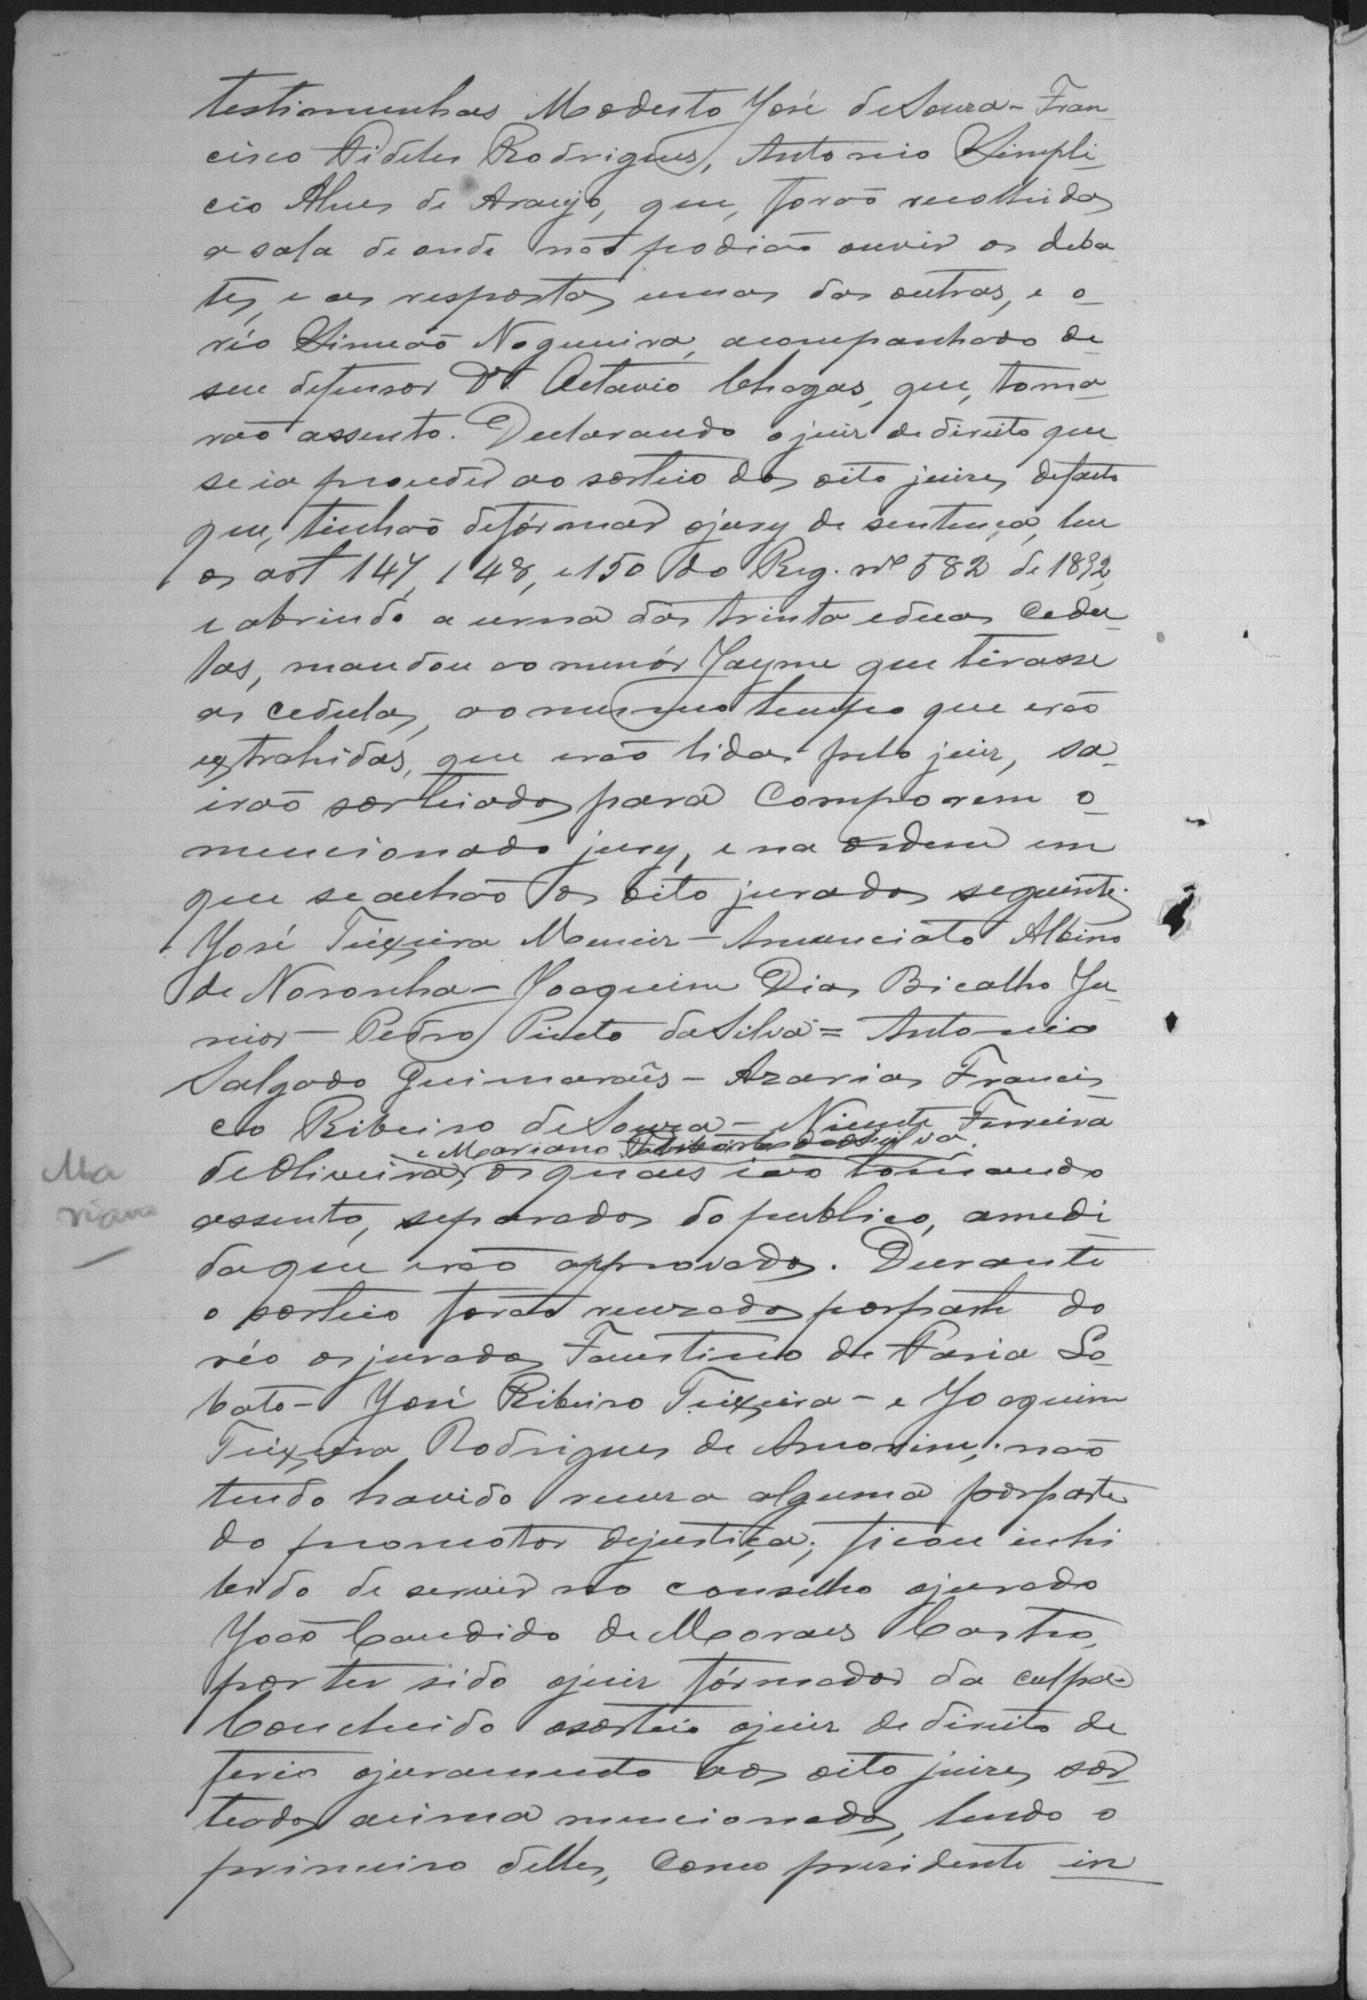 testimunhas Modesto José de Souza - Fran
cisco Fideles Rodrigues, Antonio Simpli
cio Alves de Araujo, que, forão recolhidas
a sala de onde não podião ouvir os deba
tes, e as respostas umas das outras, e o
réo Simeão Nogueira, acompanhado de
seu defensor Dr. Octavio Chagas, que, toma
rão assento. Declarando o juiz de direito que
se ia proceder ao sorteio dos oito juizes de facto
que, tinhão de fórmar o jury de sentença, leu
os art 147, 148, e 150 do Reg. nº 582 de 1892,
e abrindo a urna das trinta e duas cedu
las, mandou ao menór Jayme que tirasse
as cedulas, ao mesmo tempo que erão
extrahidas, que erão lidas pelo juiz, sa
irão sorteados para comporem o
mencionado jury, e na ordem em
que se achão os oito jurados seguintes.
José Teixeira Muniz - Anunciato Albino
de Noronha - Joaquim Dias Bicalho Ju
nior - Pedro Pinto da Silva = Antonio
Salgado Guimarães - Azarias Francis
co Ribeiro de Souza - Ferreira
e Mariano da Silva.
de Oliveira, os quaes ião tomando
Ma
riano
assento, separados do publico, a medi
da que erão approvados. Durante
o sorteio forão recuzados por parte do
réo os jurados Faustino de Faria Lo
bato - José Ribeiro Teixeira - e Joaquim
Teixeira Rodrigues de Amorim; não
tendo havido recuza alguma por parte
do promotor de justiça; ficou inhi
bido de servir no conselho o jurado
João Candido de Moraes Castro,
por ter sido o juiz fórmador da culpa.
Concluido o sorteio o juiz de direito de
ferio o juramento aos oito juizes sor
teados acima mencionados, lendo o
primeiro delles, como presidente in